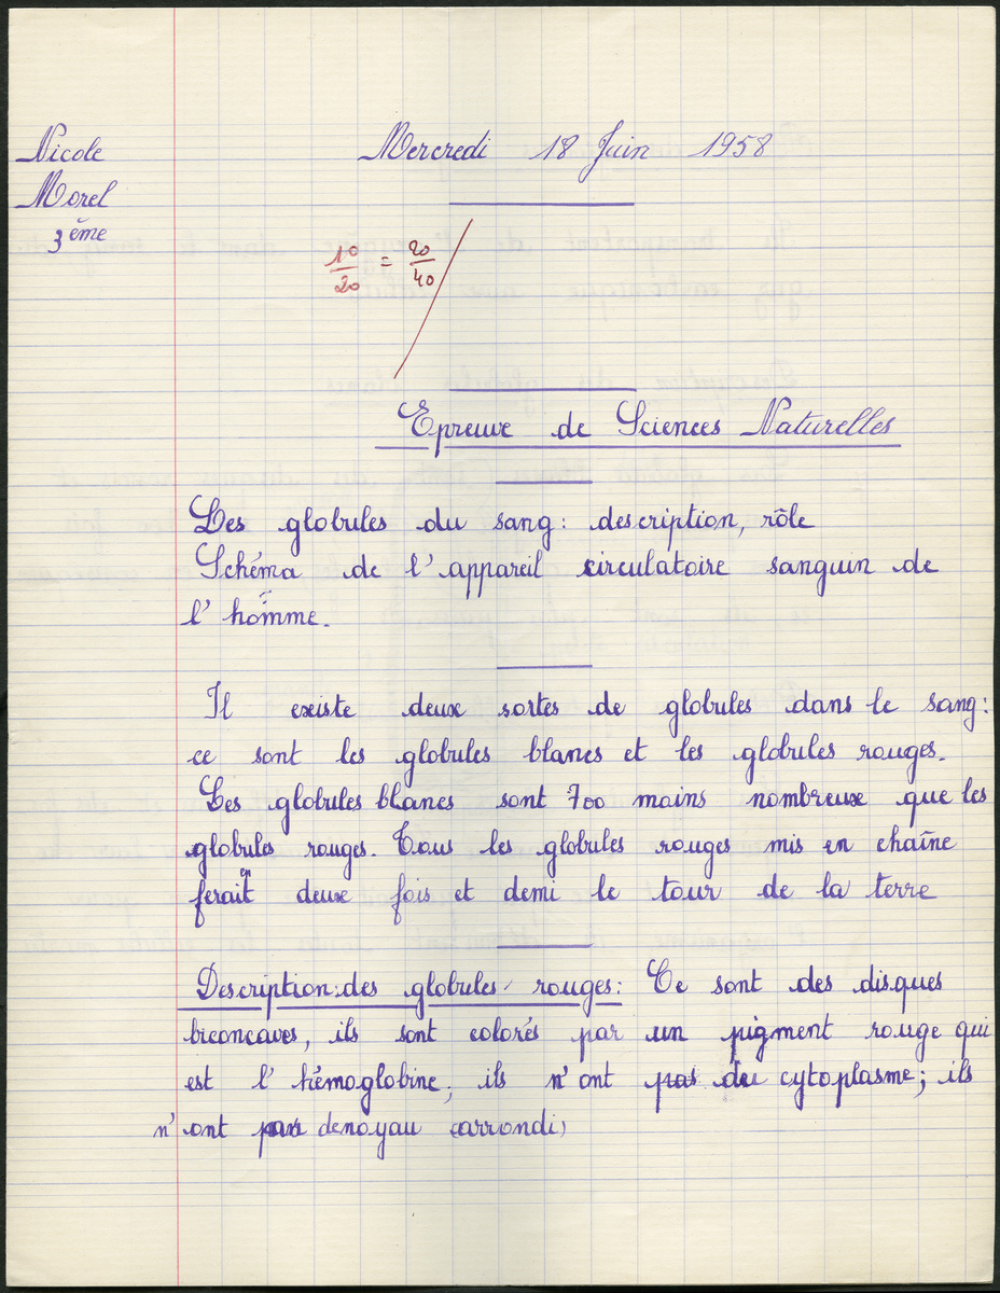 Nicole
Morel
3ème
Mercredi 18 Juin 1958
10/20 = 20/40
Epreuve de Sciences Naturelles
Les globules du sang : description, rôle
Schéma de l'appareil circulatoire sanguin de
l'homme.
Il existe deux sortes de globules dans le sang :
ce sont les globules blancs et les globules rouges.
Les globules blancs sont 700 moins nombreux que les
globules rouges. Tous les globules rouges mis en chaîne
ferait en deux fois et demi le tour de la terre
Description : des globules rouges : Ce sont des disques
biconcaves, ils sont colorés par un pigment rouge qui
est l'hémoglobine ; ils n'ont pas de cytoplasme ; ils
n'ont pas denoyau (arrondi)